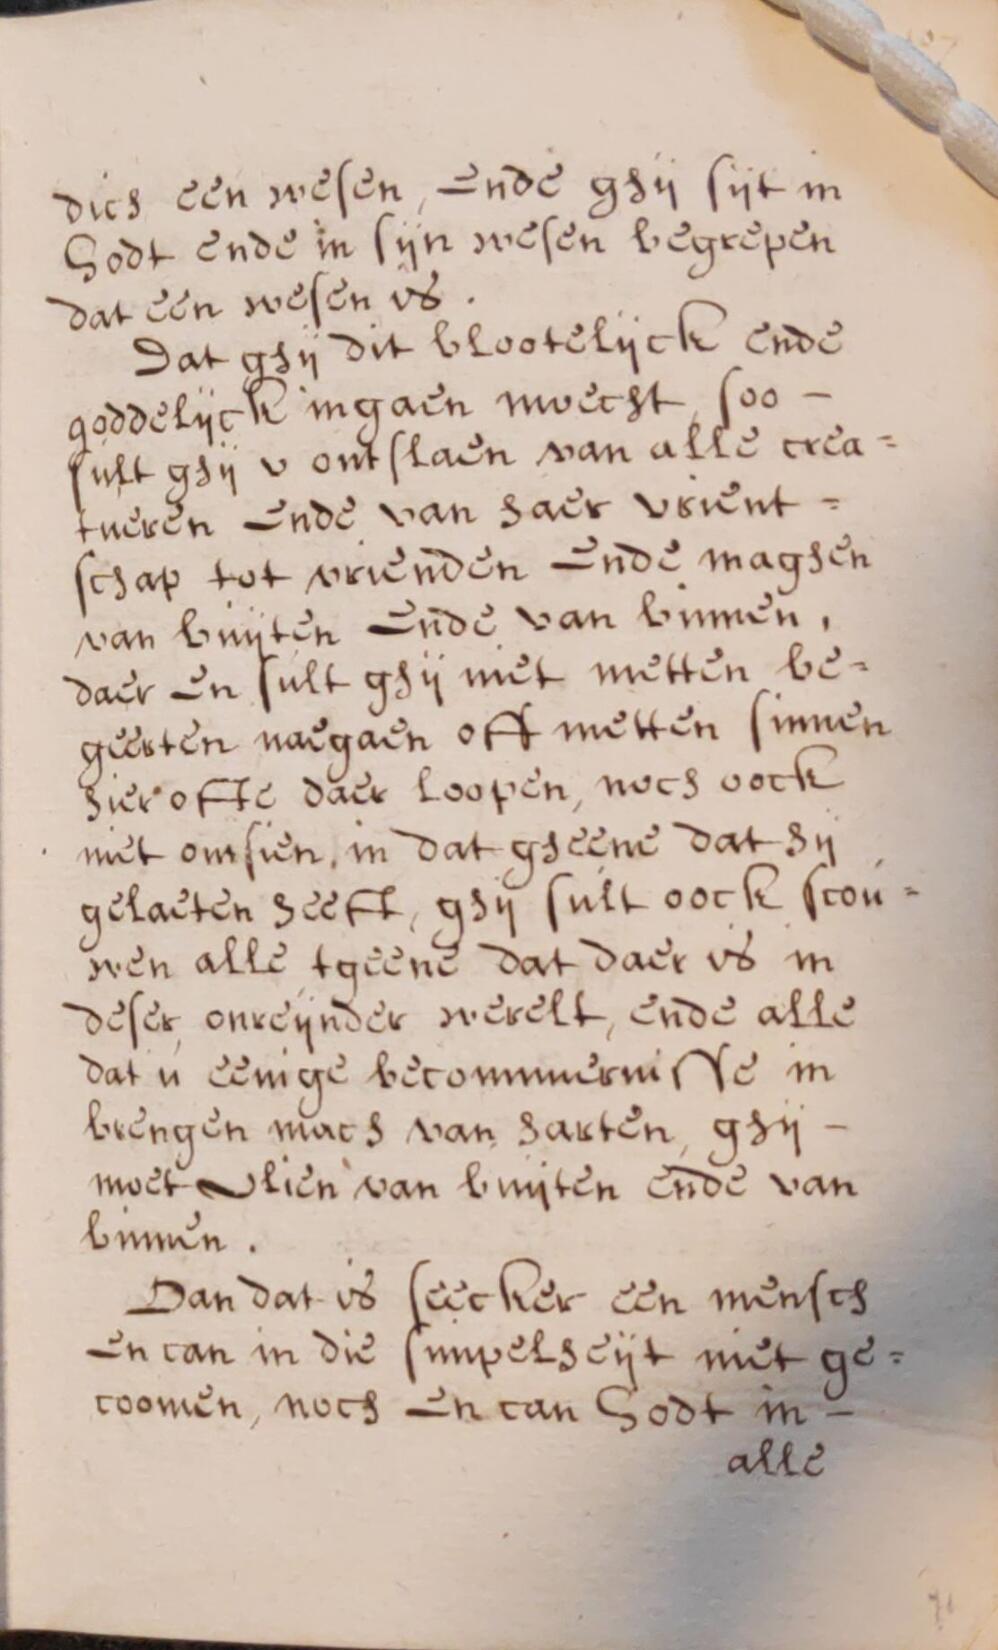 dich een wesen, Ende ghij sijt in
Godt ende in sijn wesen begrepen
dat een wesen is.
Dat ghij dit blootelijck ende
goddelijck ingaen moecht, soo -
sult ghij v ontslaen van alle crea=
tueren Ende van haer vrient=
schap tot vrienden Ende maghen
van buijten Ende van binnen,
daer En sult ghij niet metten be=
geerten naegaen off metten sinnen
hier ofte daer loopen, noch oock
niet omsien, in dat gheene dat hij
gelaeten heeft, ghij sult oock scou=
wen alle tgeene dat daer is in
deser onreijnder werelt, ende alle
dat u eenige becommernisse in
brengen mach van harten, ghij -
moet vlien van buijten ende van
binnen.
Dan dat is seecker een mensch
En can in die simpelheijt niet ge=
coomen, noch En can Godt in -
alle